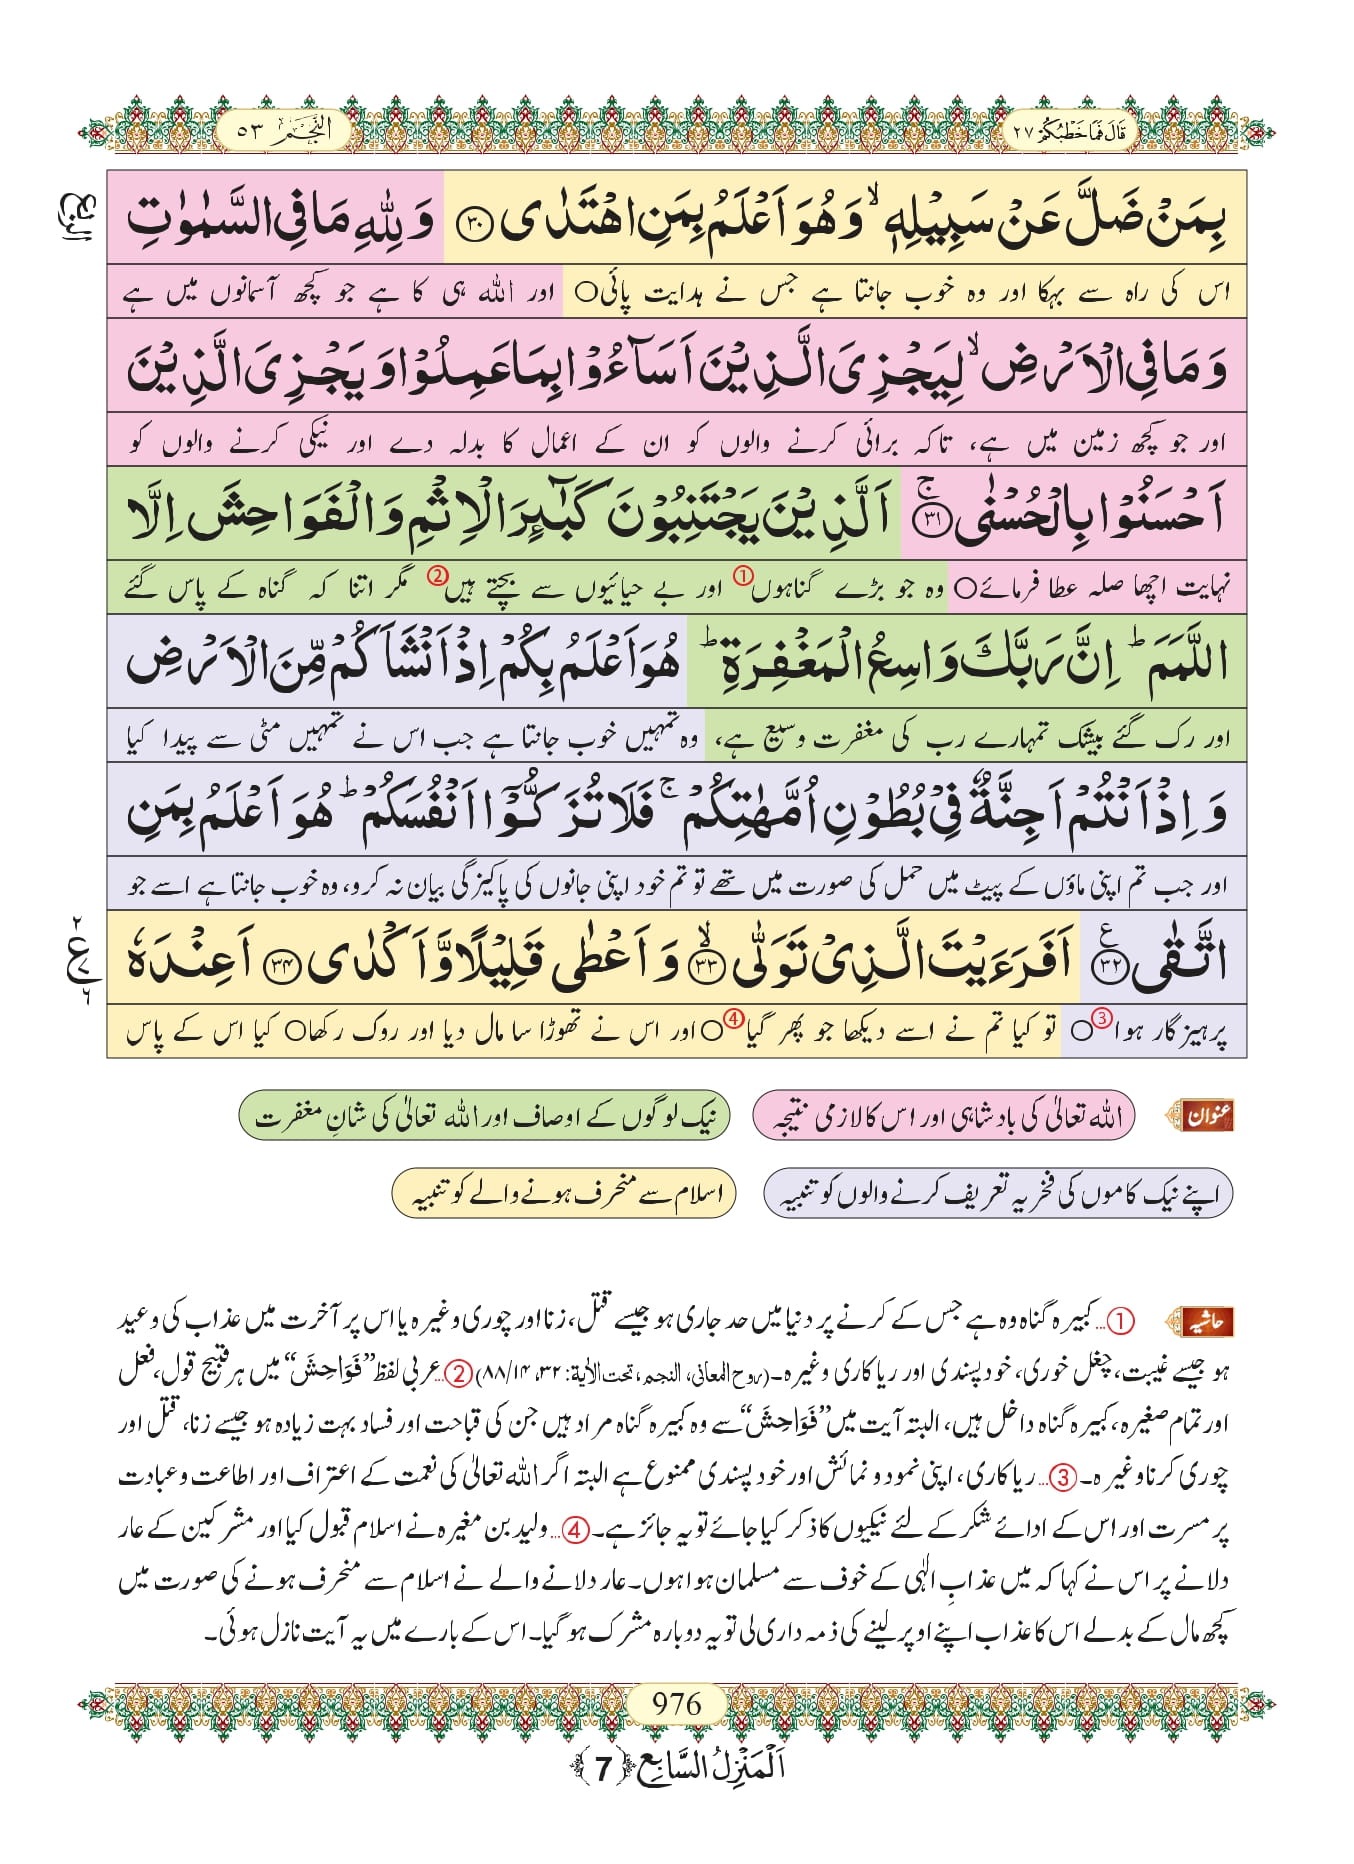 قَالَ فَمَا خَطْبُكُمْ ٢٧
النَّجْم ٥٣
بِمَنْ ضَلَّ عَنْ سَبِیْلِهٖۙ وَ هُوَ اَعْلَمُ بِمَنِ اهْتَدٰی ﴿۳۰﴾ وَ لِلّٰهِ مَا فِی السَّمٰوٰتِ
الربع
اس کی راہ سے بہکا اور وہ خوب جانتا ہے جس نے ہدایت پائی○ اور اللہ ہی کا ہے جو کچھ آسمانوں میں ہے
وَ مَا فِی الْاَرْضِۙ لِیَجْزِیَ الَّذِیْنَ اَسَآءُوْا بِمَا عَمِلُوْا وَ یَجْزِیَ الَّذِیْنَ
اور جو کچھ زمین میں ہے، تاکہ برائی کرنے والوں کو ان کے اعمال کا بدلہ دے اور نیکی کرنے والوں کو
اَحْسَنُوْا بِالْحُسْنٰیۚ ﴿۳۱﴾ اَلَّذِیْنَ یَجْتَنِبُوْنَ كَبٰٓىِٕرَ الْاِثْمِ وَ الْفَوَاحِشَ اِلَّا
نہایت اچھا صلہ عطا فرمائے○ وہ جو بڑے گناہوں① اور بے حیائیوں سے بچتے ہیں② مگر اتنا کہ گناہ کے پاس گئے
اللَّمَمَؕ اِنَّ رَبَّكَ وَاسِعُ الْمَغْفِرَةِؕ هُوَ اَعْلَمُ بِكُمْ اِذْ اَنْشَاَكُمْ مِّنَ الْاَرْضِ
اور رک گئے بیشک تمہارے رب کی مغفرت وسیع ہے، وہ تمہیں خوب جانتا ہے جب اس نے تمہیں مٹی سے پیدا کیا
وَ اِذْ اَنْتُمْ اَجِنَّةٌ فِیْ بُطُوْنِ اُمَّهٰتِكُمْۚ فَلَا تُزَكُّوْۤا اَنْفُسَكُمْؕ هُوَ اَعْلَمُ بِمَنِ
اور جب تم اپنی ماؤں کے پیٹ میں حمل کی صورت میں تھے تو تم خود اپنی جانوں کی پاکیزگی بیان نہ کرو، وہ خوب جانتا ہے اسے جو
اتَّقٰی ﴿۳۲﴾ع اَفَرَءَیْتَ الَّذِیْ تَوَلّٰیۙ ﴿۳۳﴾ وَ اَعْطٰی قَلِیْلًا وَّ اَكْدٰی ﴿۳۴﴾ اَعِنْدَهٗ
٢ ع ٦
پرہیزگار ہوا③○ تو کیا تم نے اسے دیکھا جو پھر گیا④○ اور اس نے تھوڑا سا مال دیا اور روک رکھا○ کیا اس کے پاس
عنوان
اللہ تعالیٰ کی بادشاہی اور اس کا لازمی نتیجہ
نیک لوگوں کے اوصاف اور اللہ تعالیٰ کی شانِ مغفرت
اپنے نیک کاموں کی فخریہ تعریف کرنے والوں کو تنبیہ
اسلام سے منحرف ہونے والے کو تنبیہ
حاشیہ
①... کبیرہ گناہ وہ ہے جس کے کرنے پر دنیا میں حد جاری ہو جیسے قتل، زنا اور چوری وغیرہ یا اس پر آخرت میں عذاب کی وعید
ہو جیسے غیبت، چغل خوری، خود پسندی اور ریاکاری وغیرہ۔(روح المعانی، النجم، تحت الآیة: ۳۲، ۱۴/۸۸) ②...عربی لفظ ”فَوَاحِشَ“ میں ہر قبیح قول، فعل
اور تمام صغیرہ، کبیرہ گناہ داخل ہیں، البتہ آیت میں ”فَوَاحِشَ“ سے وہ کبیرہ گناہ مراد ہیں جن کی قباحت اور فساد بہت زیادہ ہو جیسے زنا، قتل اور
چوری کرنا وغیرہ۔ ③... ریاکاری، اپنی نمود و نمائش اور خود پسندی ممنوع ہے البتہ اگر اللہ تعالیٰ کی نعمت کے اعتراف اور اطاعت و عبادت
پر مسرت اور اس کے ادائے شکر کے لئے نیکیوں کا ذکر کیا جائے تو یہ جائز ہے۔ ④... ولید بن مغیرہ نے اسلام قبول کیا اور مشرکین کے عار
دلانے پر اس نے کہا کہ میں عذابِ الٰہی کے خوف سے مسلمان ہوا ہوں۔ عار دلانے والے نے اسلام سے منحرف ہونے کی صورت میں
کچھ مال کے بدلے اس کا عذاب اپنے اوپر لینے کی ذمہ داری لی تو یہ دوبارہ مشرک ہو گیا۔ اس کے بارے میں یہ آیت نازل ہوئی۔
976
اَلْمَنْزِلُ السَّابِع ﴿7﴾